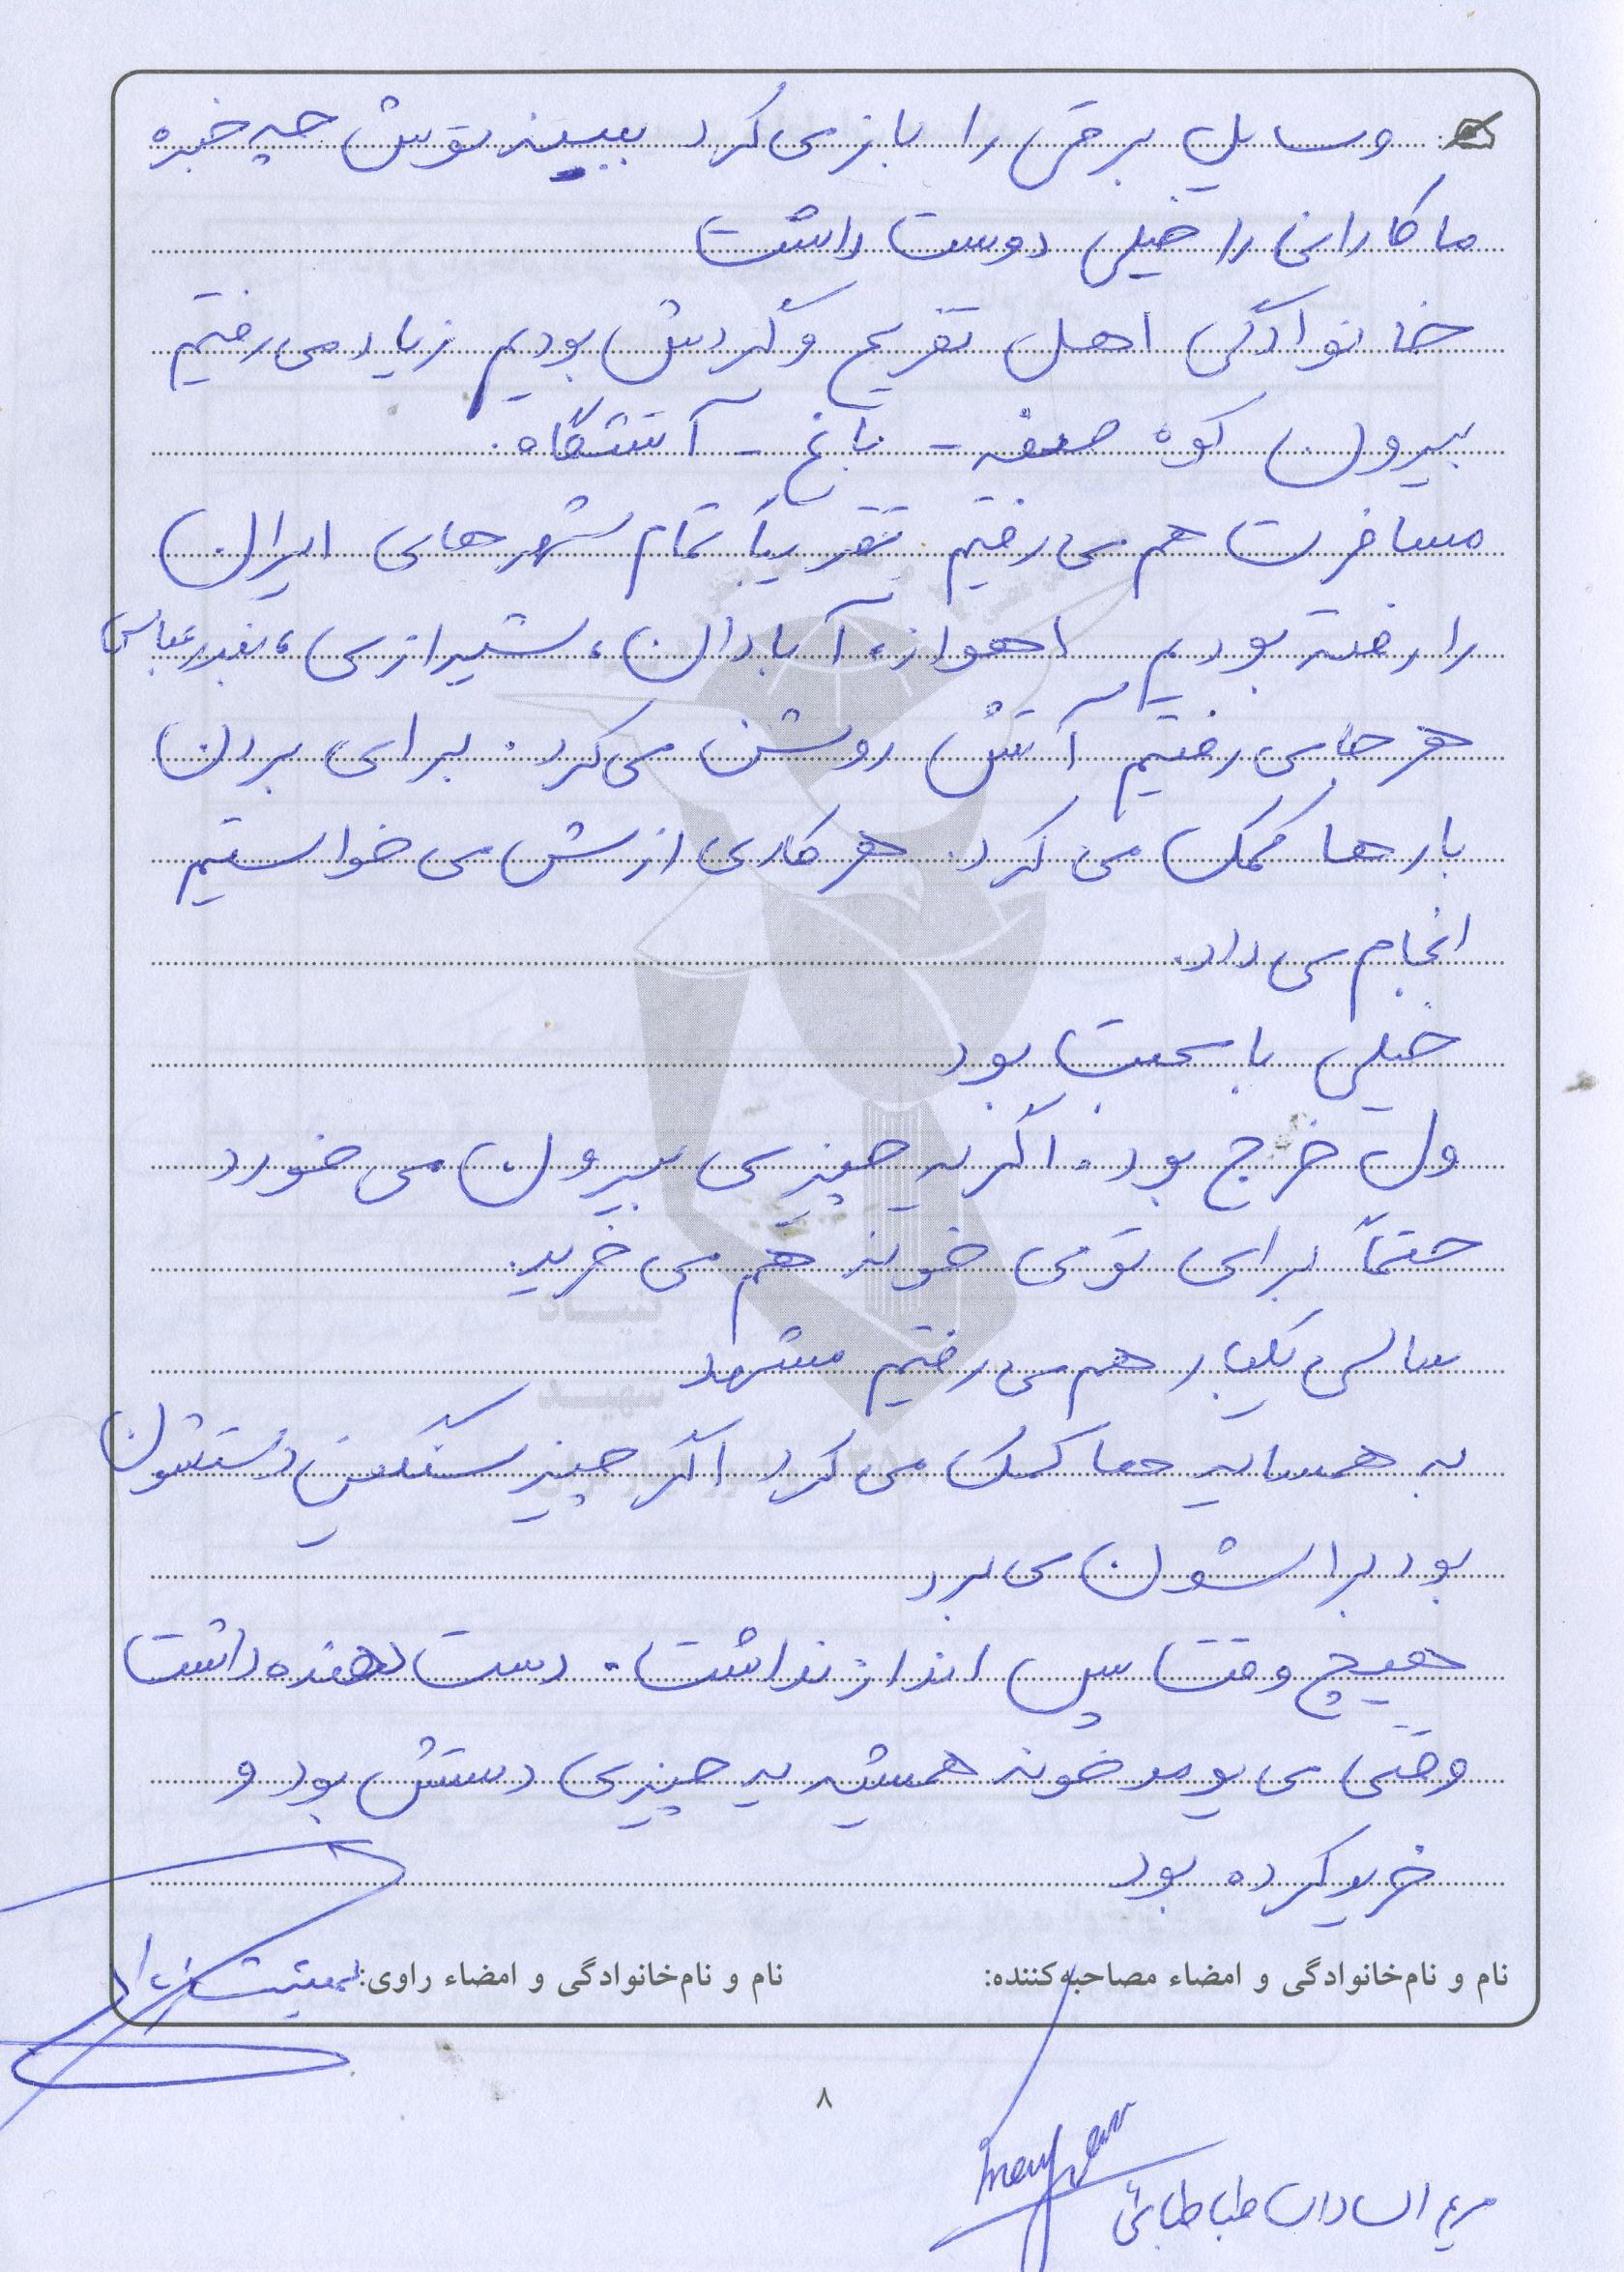 وسایل برقی را باز می کرد ببینه توش چه خبره
ماکارانی را خیلی دوست داشت
خانوادگی اهل تفریح و گردش بودیم زیاد می رفتیم
بیرون کوه صفه - باغ - آتشگاه.
مسافرت هم می رفتیم تقریباً تمام شهرهای ایران
را رفته بودیم اهواز، آبادان، شیرازی، بندرعباس
هر جا می رفتیم آتش روشن می کرد. برای بردن
بارها کمک می کرد. هر کاری ازش می خواستیم
انجام می داد.
خیلی با محبت بود
ول خرج بود. اگر یه چیزی بیرون می خورد
حتماً برای تو می خونه هم می خرید.
سالی یکبار هم می رفتیم مشهد
به همسایه ها کمک می کرد اگر چیز سنگین دستشون
بود براشون می برد
هیچ وقت پس انداز نداشت. دست دهنده داشت
وقتی می یومد خونه همیشه یه چیزی دستش بود و
خرید کرده بود
نام و نام‌خانوادگی و امضاء مصاحبه‌کننده:
نام و نام‌خانوادگی و امضاء راوی:
۸
مریم السادات طباطبائی
بنیاد
شهید